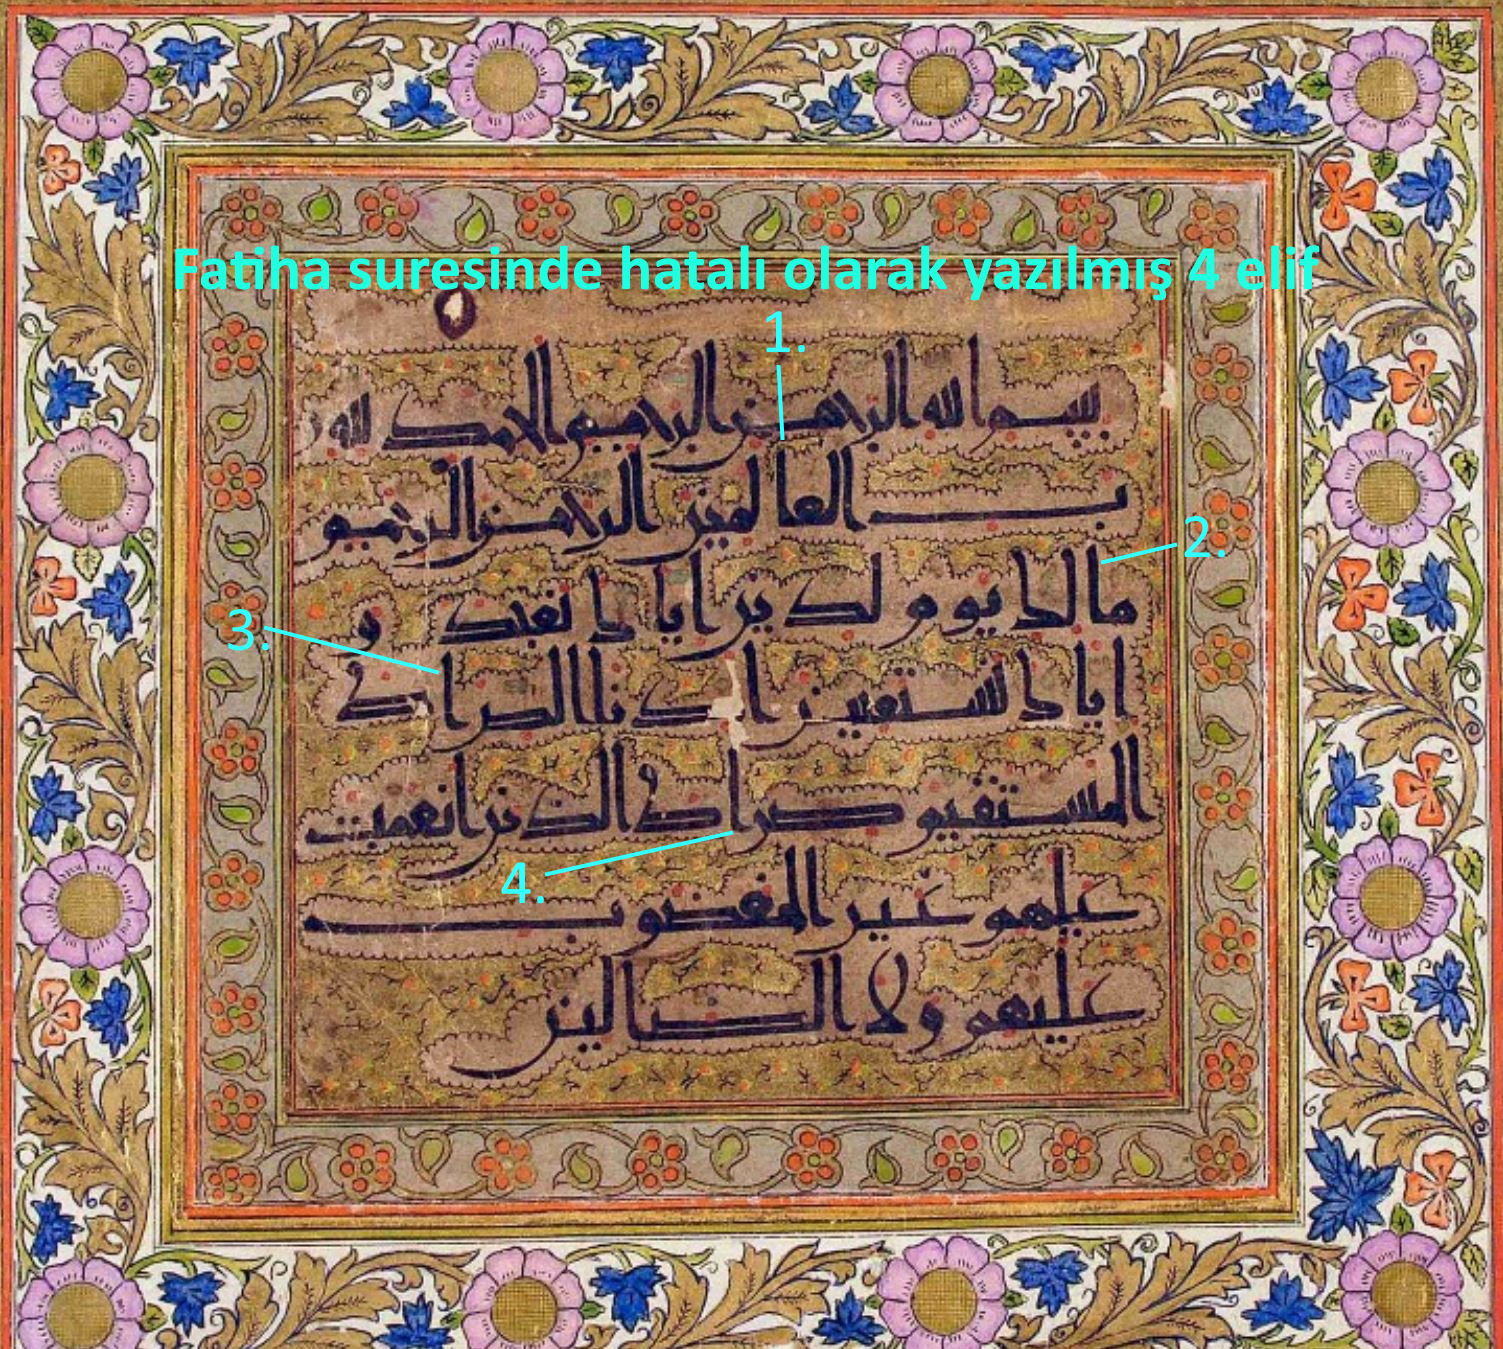 Fatiha suresinde hatalı olarak yazılmış 4 elif
1.
بسم الله الرحمن الرحيم الحمد لله ر
ب العالمين الرحمن الرحيم
2.
مالك يوم الدين اياك نعبد و
3.
اياك نستعين اهدنا الصراط
المستقيم صراط الذين انعمت
4.
عليهم غير المغضوب
عليهم ولا الضالين